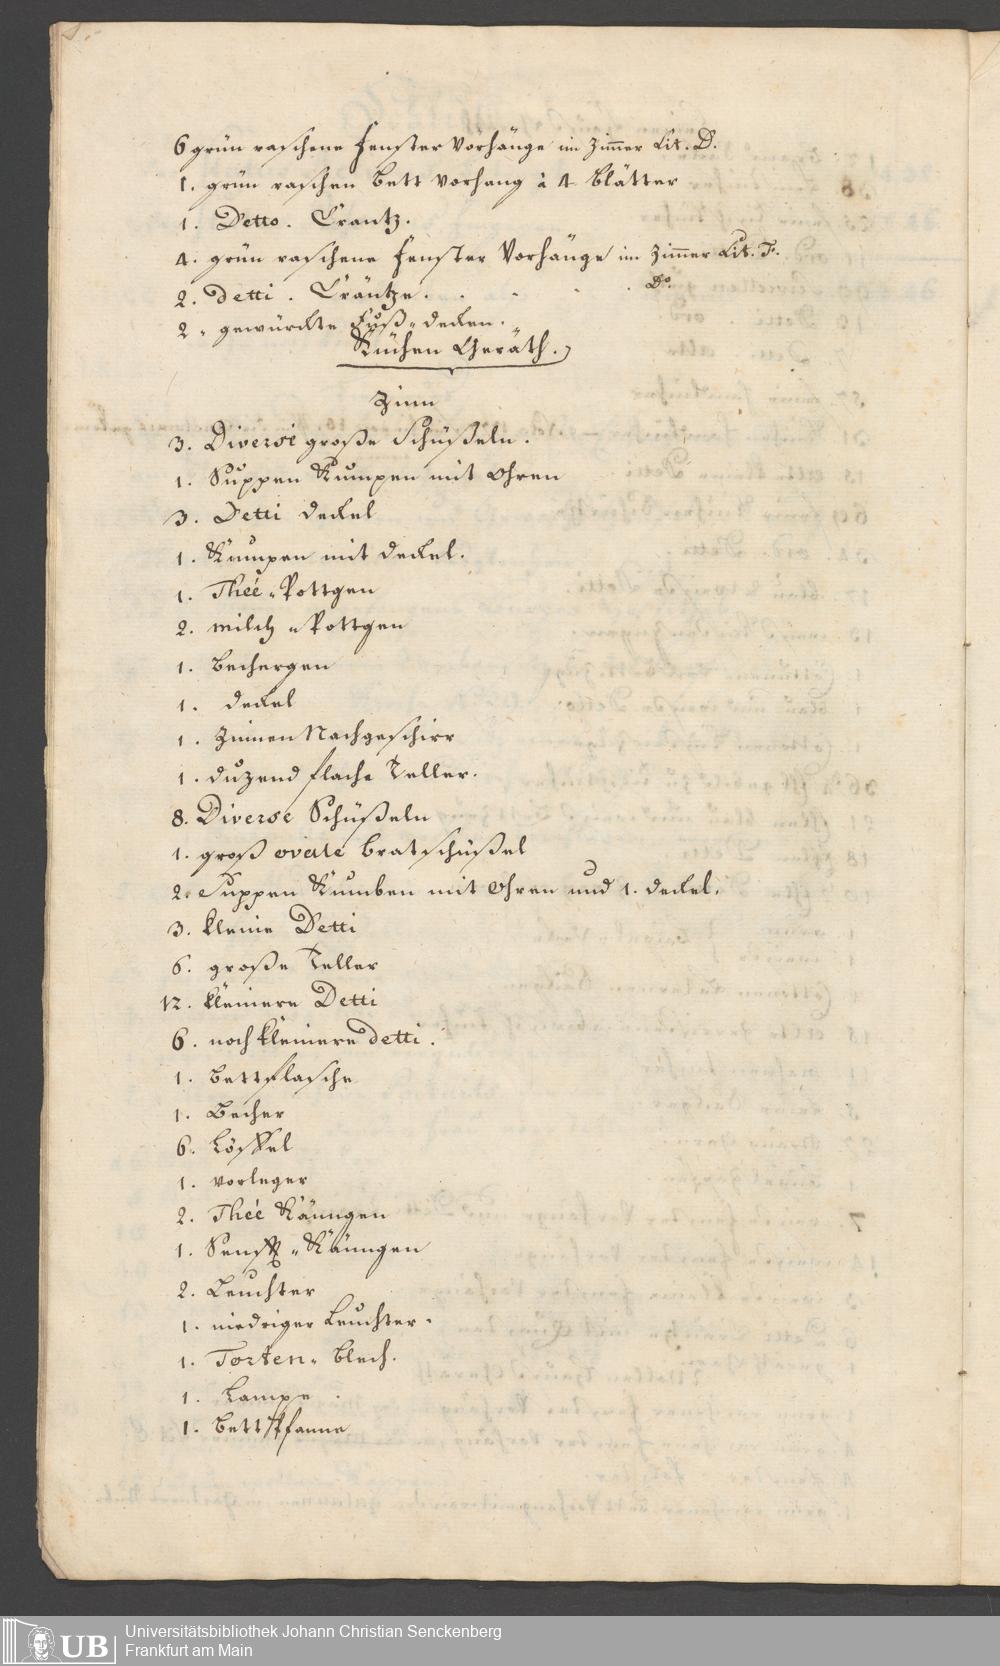 6 grün raschene Fenster Vorhänge im Zimmer Lit. D.
1. grün raschen Bett Vorhang à 4 Blätter
1. Detto. Crantz.
4. grün raschene Fenster Vorhänge im Zimmer Lit. F.
2. Detti. Cräntze. . . . Do.
2. gewürckte Fuß-decken.
Küchen Geräth.
Zinn
3. Diverse große Schüßeln.
1. Suppen Kumpen mit Ohren
3. Detti deckel
1. Kumpen mit deckel.
1. Theé-Pottgen
2. milch-Pottgen
1. bechergen
1. deckel
1. Zinnen Nachgeschirr
1. duzend flache Teller.
8. Diverse Schüßeln
1. groß ovale bratschüßel
2. Suppen Kumben mit Ohren und 1. deckel.
3. kleine Detti
6. große Teller
12. kleinere Detti
6. noch kleinere detti.
1. bettflasche
1. Becher
6. Löffel
1. vorleger
2. Theé Känngen
1. Senff-Känngen
2. Leuchter
1. niedriger Leuchter.
1. Torten-blech.
1. Lampe.
1. bett Pfanne
UB Universitätsbibliothek Johann Christian Senckenberg
Frankfurt am Main